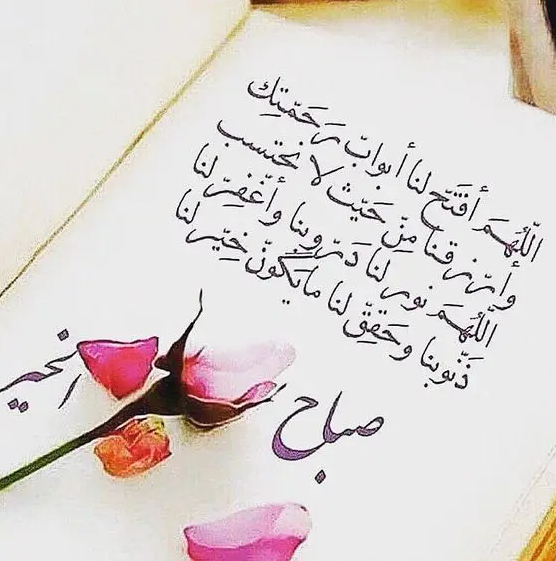 اللّهُمَ أفتَح لنا أبواب رَحمَتِك
وأرزقنا مِن حَيث لا نحتسب
اللّهُمَ نور لنا دَروبنا وأغفِر لنا
ذَنوبنا وحَقِق لنا مايَكون خِير لنا
صباح الخير